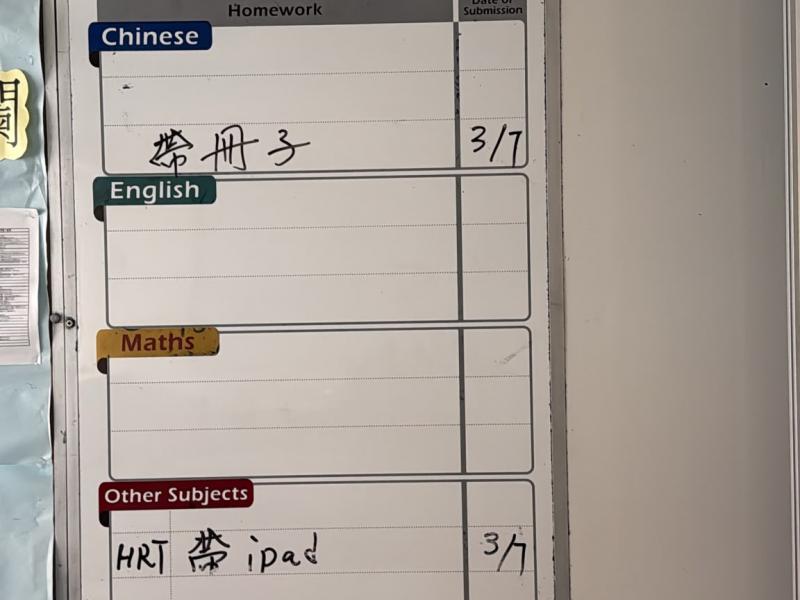 Homework
Date of Submission
Chinese
帶冊子 3/7
English
Maths
Other Subjects
HRT 帶 ipad 3/7